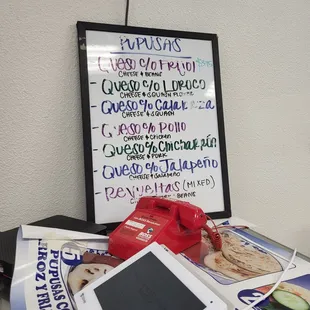 PUPUSAS
- QUESO c/o FRIJOL
CHEESE & BEANS
- QUESO c/o LOROCO
CHEESE &
- QUESO c/o
CHEESE & SQUASH
- QUESO c/o POLLO
CHEESE & CHICKEN
- QUESO c/o CHICHARRÓN
CHEESE & PORK
- QUESO c/o JALAPEÑO
CHEESE & JALAPEÑO
- REVUELTAS (MIXED)
BEANS
ARROZ Y
PUPUSAS